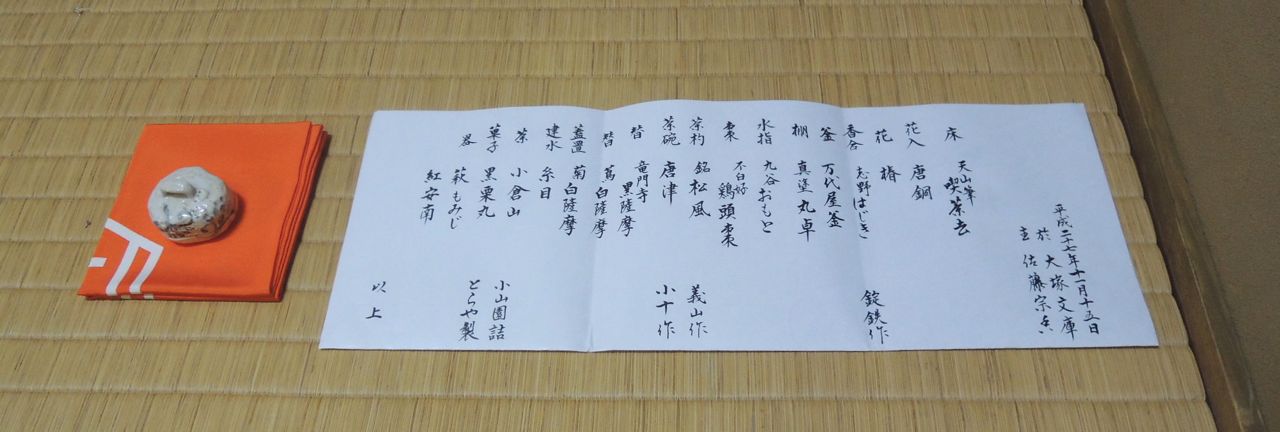 平成二十七年十一月十五日
於 大塚文庫
主 佐藤宗
床 天山筆 喫茶去
花入 唐銅
花 椿
香合 志野はじき
釜 万代屋釜 錠鉄作
棚 真塗丸卓
水指 九谷おもと
棗 不白好 鶏頭棗
茶杓 銘 松風 義山作
茶碗 唐津 小十作
替 竜門寺 黒薩摩
替 蔦 白薩摩
蓋置 菊 白薩摩
建水 糸目
茶 小倉山 小山園詰
菓子 黒栗丸 とらや製
器 萩 もみじ
紅安南
以上